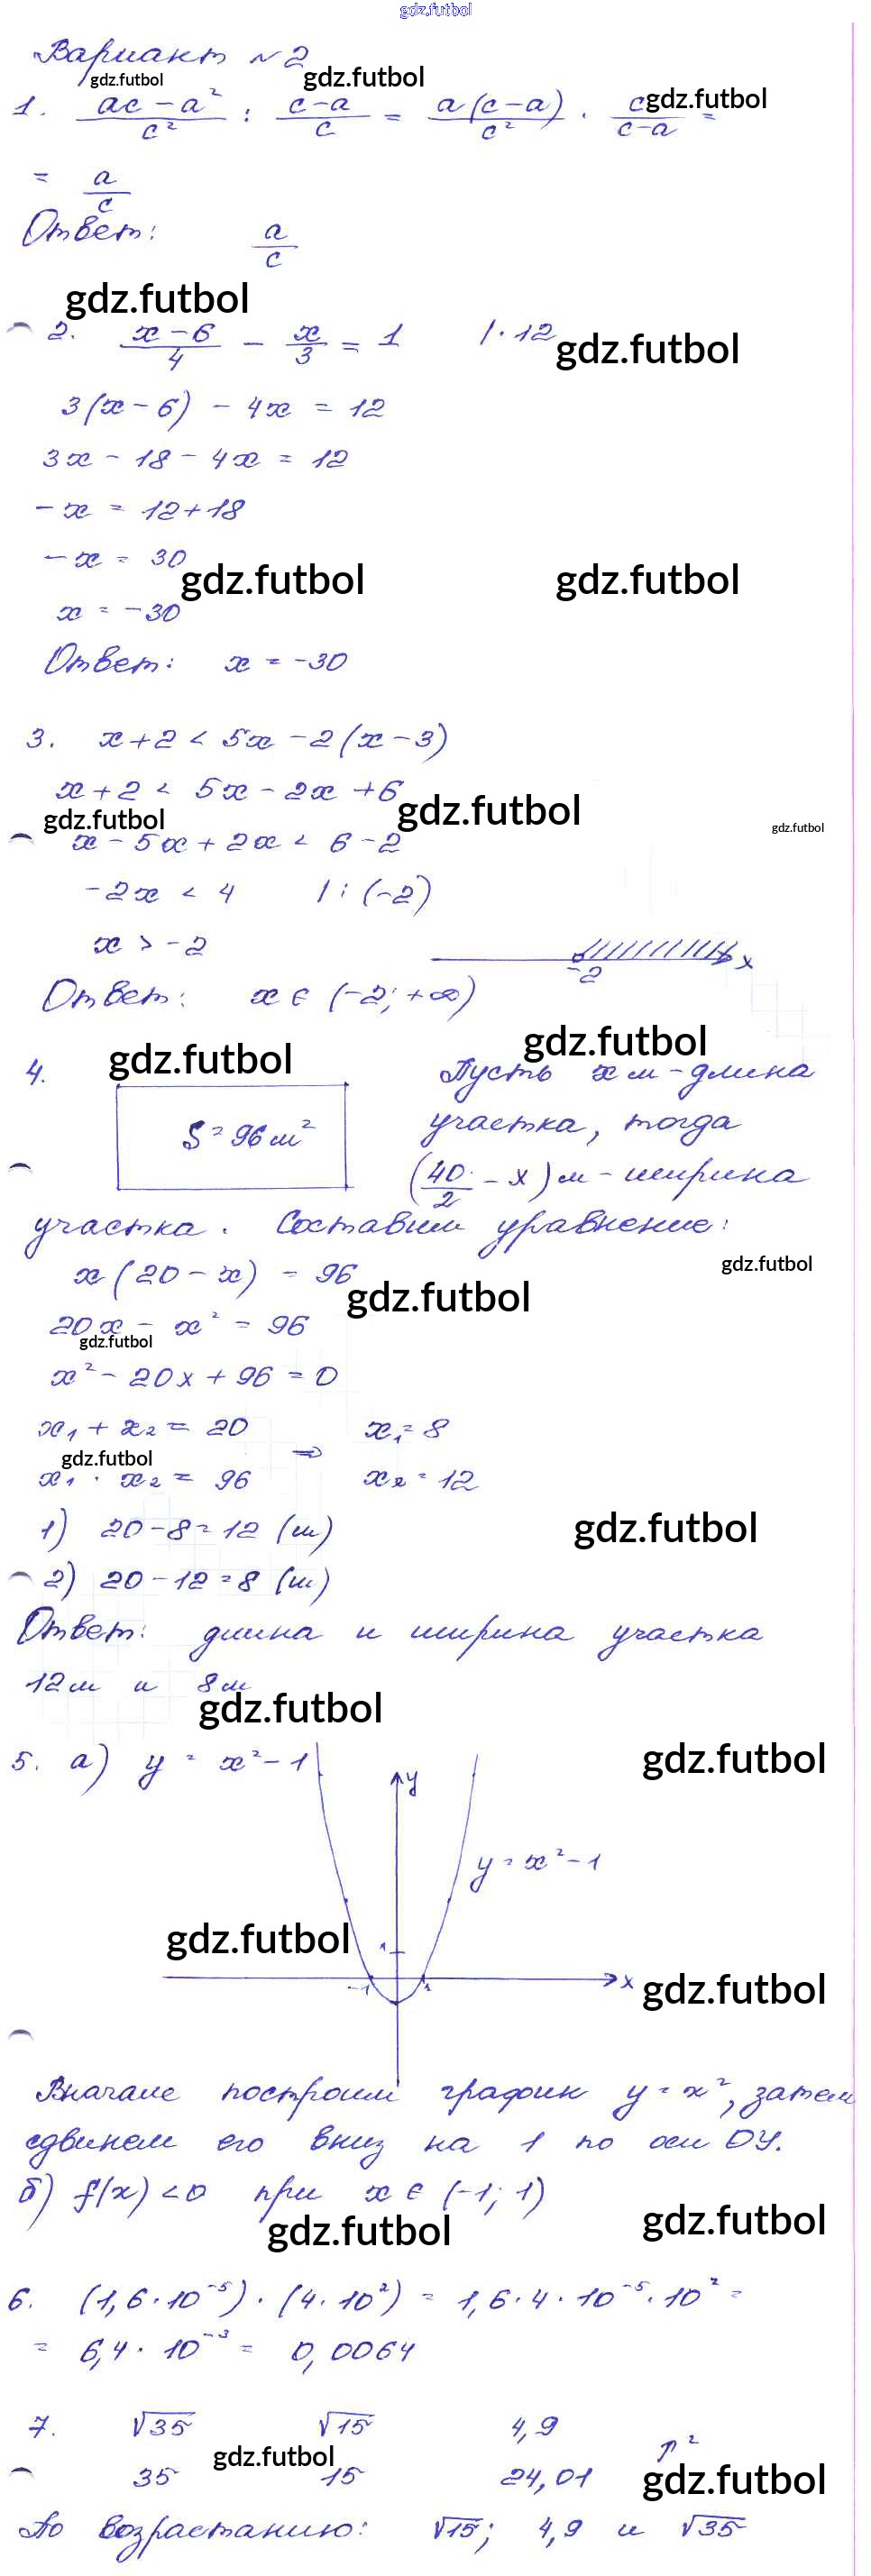 gdz.futbol
Вариант №2
gdz.futbol gdz.futbol
1. (ac - a²)/c² : (c-a)/c = a(c-a)/c² · c/(c-a) =
gdz.futbol
= a/c
Ответ: a/c
gdz.futbol
2. (x-6)/4 - x/3 = 1 | · 12
gdz.futbol
3(x-6) - 4x = 12
3x - 18 - 4x = 12
-x = 12+18
-x = 30
gdz.futbol gdz.futbol
x = -30
Ответ: x = -30
3. x+2 < 5x - 2(x-3)
x+2 < 5x - 2x + 6
gdz.futbol gdz.futbol gdz.futbol
x - 5x + 2x < 6 - 2
-2x < 4 | : (-2)
x > -2
-2 x
Ответ: x ∈ (-2; +∞)
gdz.futbol gdz.futbol
4. Пусть x м - длина
S = 96 м² участка, тогда
(40/2 - x) м - ширина
участка. Составим уравнение:
x(20 - x) = 96
gdz.futbol gdz.futbol
20x - x² = 96
gdz.futbol
x² - 20x + 96 = 0
x₁ + x₂ = 20 x₁ = 8
gdz.futbol ⇒
x₁ · x₂ = 96 x₂ = 12
1) 20 - 8 = 12 (м)
gdz.futbol
2) 20 - 12 = 8 (м)
Ответ: длина и ширина участка
12 м и 8 м
gdz.futbol
5. а) y = x² - 1
gdz.futbol
y
y = x² - 1
gdz.futbol
1
-1 1 x
gdz.futbol
Вначале построим график y = x², затем
сдвинем его вниз на 1 по оси OY.
б) f(x) < 0 при x ∈ (-1; 1)
gdz.futbol gdz.futbol
6. (1,6 · 10⁻⁵) · (4 · 10²) = 1,6 · 4 · 10⁻⁵ · 10² =
= 6,4 · 10⁻³ = 0,0064
7. √35 √15 4,9
gdz.futbol ↑²
35 15 24,01
gdz.futbol
По возрастанию: √15; 4,9 и √35